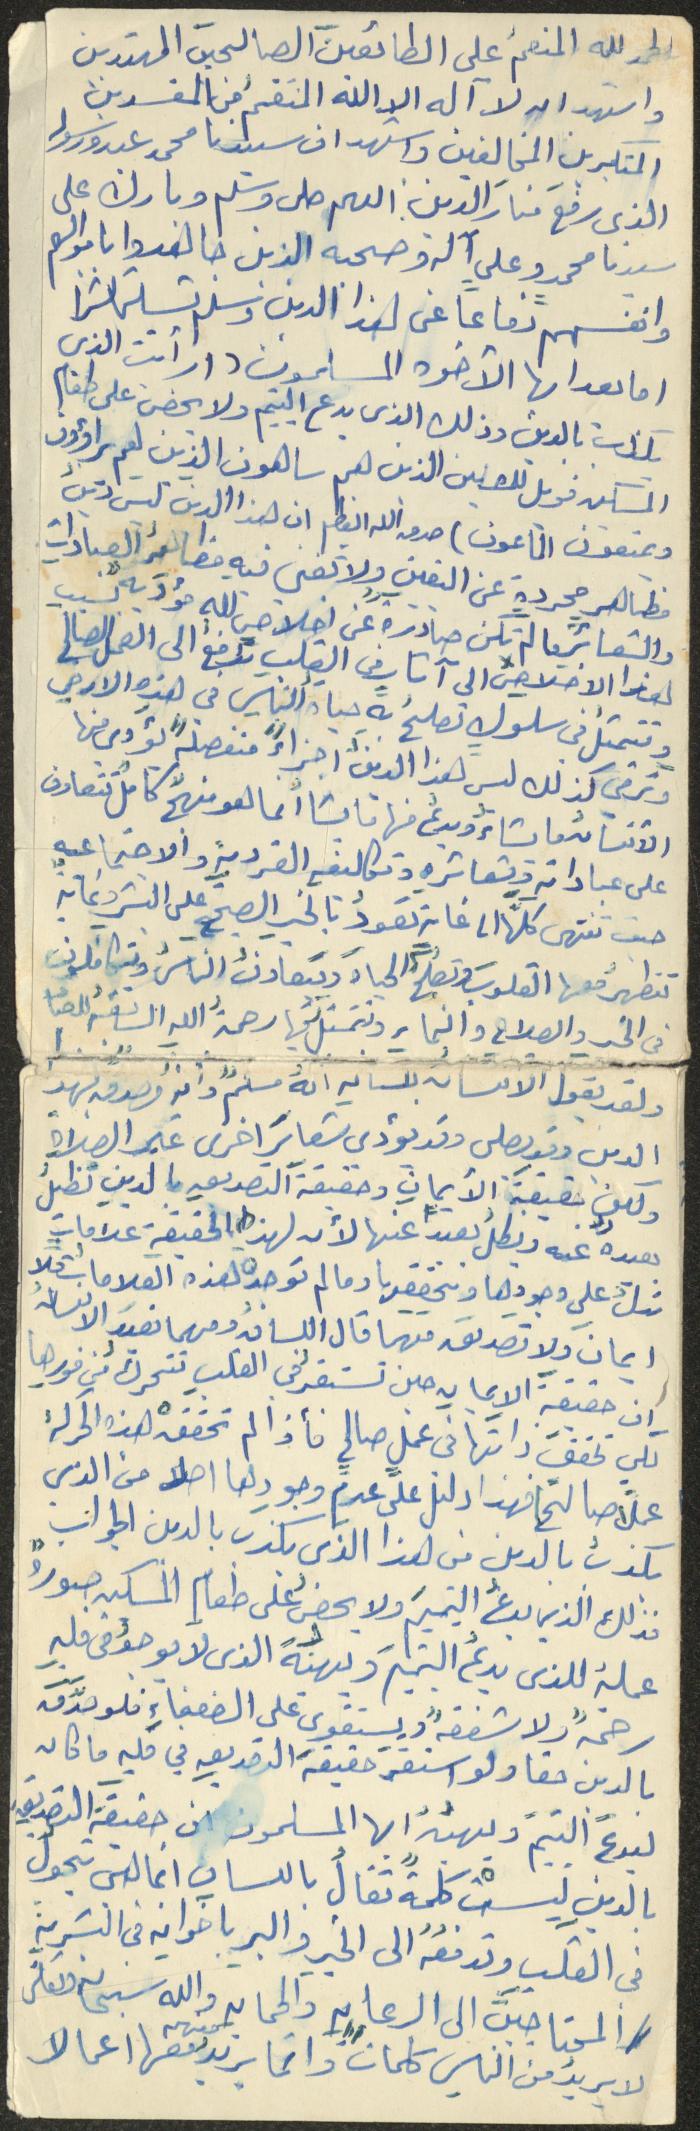 الحمد لله المنعم على الطائعين الصالحين المهتدين
واشهد ان لا آله الا الله المنتقم من المفسدين
المتكبرين المخالفين واشهد ان سيدنا محمد عبده ورسوله
الذي رفع منار الدين. اللهم صلى وسلم وبارك على
سيدنا محمدٍ وعلى آله وصحبه الذين جاهدوا باموالهم
وانفسهم دفاعاً عن لهذا الدين وسلم تسليماً كثيرا
اما بعد ايها الأخوه المسلمون (ارأيت الذى
يكذب بالدين فذلك الذى يدع اليتيم ولا يحض على طعام
المسكين فويل للمصلين الذين هم ساهون الذين هم يراؤون
ويمنعون الماعون) صدق الله العظيم ان هذا الدين ليس دينُ
مظاهر مجردةٍ عن اليقين ولا تغنى فيه مظاهرُ العبادات
والشعائر ما لم تكن صادرةً عن اخلاصٍ لله مؤديه بسبب
لهذا الاخلاص الى آثار فى القلب تدفعُ الى العمل الصالح
وتتمثلُ فى سلوكٍ تصلحُ به حياة الناس فى هذه الارض
وترقى كذلك ليس هذا الدينُ اجزاءً منفصلةً يؤدى منها
الأنسان ما شاءَ ويدعُ منها ما يشا أنما هو منهجٌ كاملٌ تتعاون
على عباداته وشعائره وتكاليفه الفردية والاجتماعيه
حيث تنتهى كلُها الى غاية تعودُ بالخير الصحيح على البشر وغايه
تتطهرُ معها القلوب وتصلحُ الحياة ويتعاونُ الناسُ ويتكافلون
فى الخير والصلاح والنماء وتتمثلُ فيها رحمةُ الله السابغةُ للعباد
ولقد يقول الانسان بلسانه انهُ مسلمٌ وأنه مصدقٌ بهذا
الدين وقد يصلى وقد يؤدى شعائر اخرى غير الصلاة
ولكن حقيقةَ الأيمان وحقيقةَ التصديق بالدين تظلُ
بعيدةً عنه ويظلُ بعيداً عنها لأن لهذه الحقيقةِ علاماتٍ
تدلُ على وجودها وتحققها وما لم توجد هذه العلاماتُ فلا
ايمان ولا تصديق مهما قال اللسان ومهما تعبد الانسانُ
ان حقيقة الايمان حين تستقر فى القلب تتحرك من فورها
لكى تحقق ذاتها فى عملٍ صالحٍ فأذا لم تحقق هذه الحركةُ
عملاً صالحاً فهذا دليل على عدم وجودها اصلا من الذى
يكذبُ بالدين من هذا الذى يكذب بالدين الجواب
فذلك الذى يدعُ اليتيمَ ولا يحضُ على طعام المسكين صورةٌ
عمليةٌ للذى يدعُ اليتيمَ ويهينهُ الذى لا يوجدُ فى قلبه
رحمةً ولا شفقةً ويستقوى على الضعفاءِ فلو صدَّق
بالدين حقا ولو استقرت حقيقةُ التصديق فى قلبه ما كان
ليدعَ اليتيمَ ويهينهُ ايها المسلمون ان حقيقةَ التصديق
بالدين ليستْ كلمةً تقالُ باللسان انما هى تحولٌ
فى القلب وتدفعُهُ الى الخير والبر بأخوانه فى البشرية
المحتاجين الى الرعايه والحمايه والله سبحانه وتعالى
لا يريدُ من الناس كلمات وانما يريدُ معها اعمالا